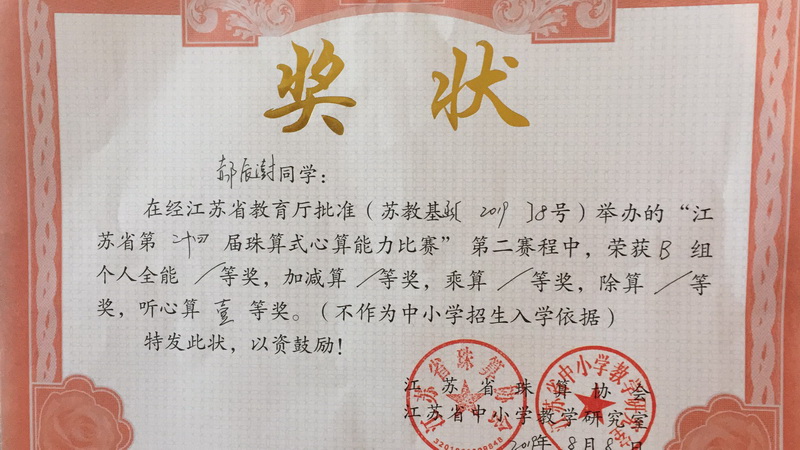 奖 状
郝辰澍同学：
在经江苏省教育厅批准（苏教基函〔2019〕8号）举办的“江
苏省第二十四届珠算式心算能力比赛”第二赛程中，荣获B组
个人全能／等奖，加减算／等奖，乘算／等奖，除算／等
奖，听心算壹等奖。（不作为中小学招生入学依据）
特发此状，以资鼓励！
江苏省珠算协会
江苏省中小学教学研究室
2019年8月8日
江苏省珠算协会
江苏省中小学教学研究室